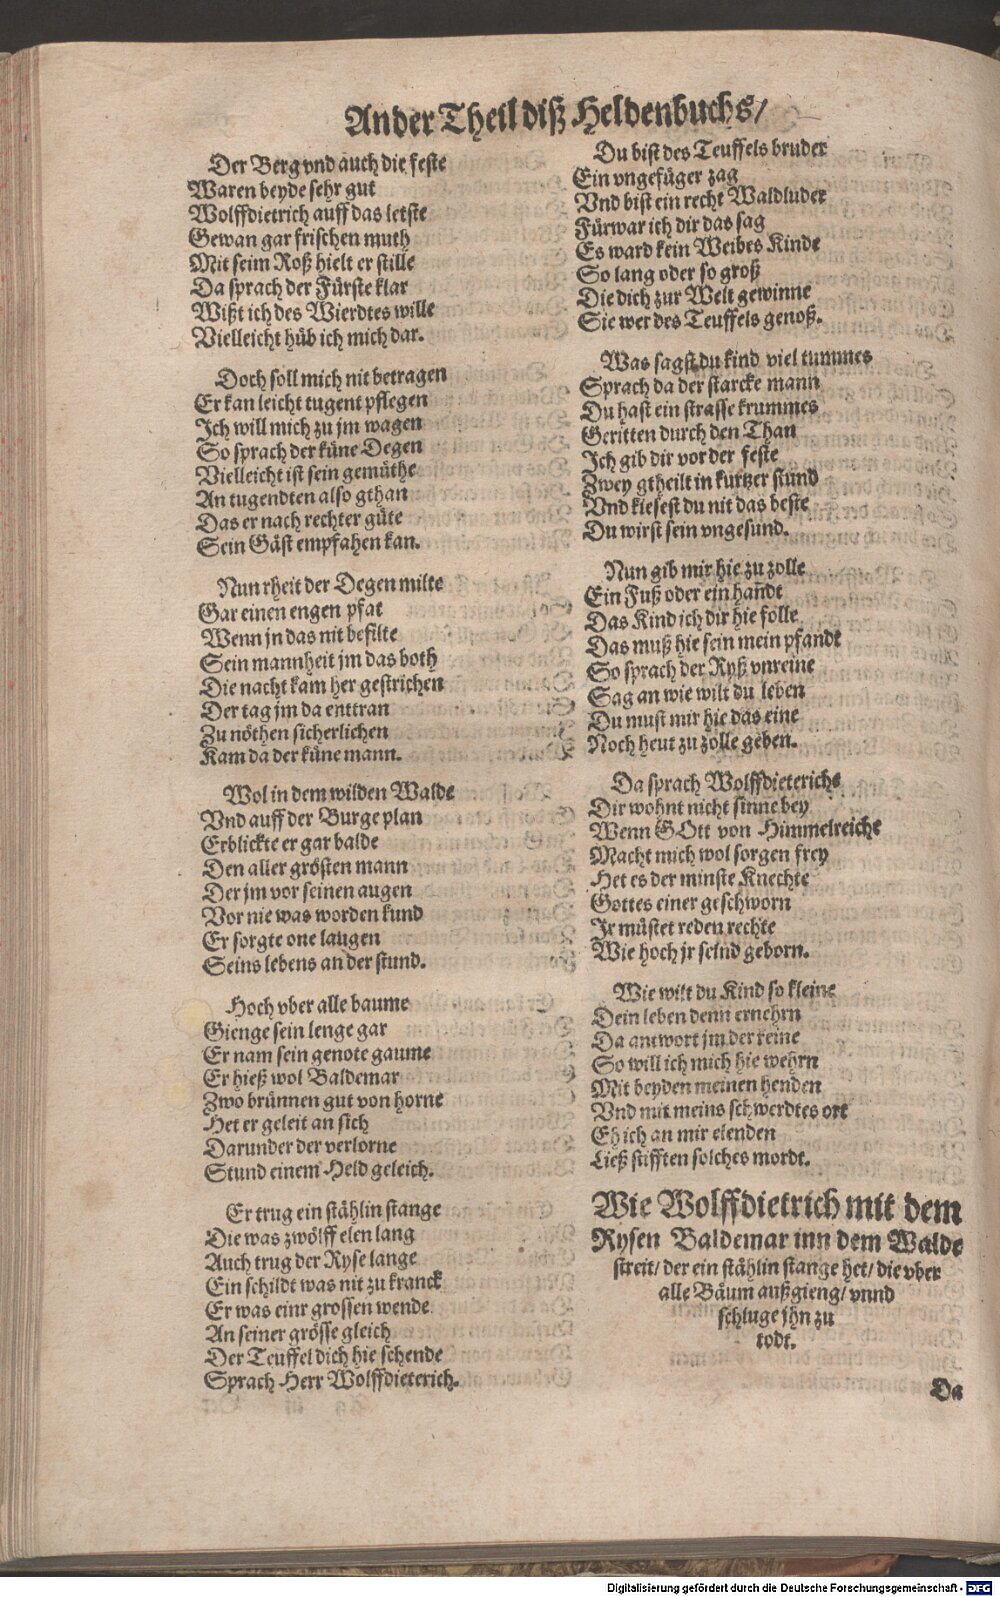 Ander Theil diß Heldenbuchs/
Der Berg vnd auch die feste
Waren beyde sehr gut
Wolffdietrich auff das letste
Gewan gar frischen muth
Mit seim Roß hielt er stille
Da sprach der Fürste klar
Wißt ich des Wierdtes wille
Vielleicht hüb ich mich dar.
Doch soll mich nit betragen
Er kan leicht tugent pflegen
Ich will mich zu jm wagen
So sprach der küne Degen
Vielleicht ist sein gemüthe
An tugendten also gthan
Das er nach rechter güte
Sein Gäst empfahen kan.
Nun rheit der Degen milte
Gar einen engen pfat
Wenn jn das nit befilte
Sein mannheit jm das both
Die nacht kam her gestrichen
Der tag jm da enttran
Zu nöthen sicherlichen
Kam da der küne mann.
Wol in dem wilden Walde
Vnd auff der Burge plan
Erblickte er gar balde
Den aller grösten mann
Der jm vor seinen augen
Vor nie was worden kund
Er sorgte one laugen
Seins lebens an der stund.
Hoch vber alle baume
Gienge sein lenge gar
Er nam sein genote gaume
Er hieß wol Baldemar
Zwo brünnen gut von horne
Het er geleit an sich
Darunder der verlorne
Stund einem Held geleich.
Er trug ein stählin stange
Die was zwölff elen lang
Auch trug der Ryse lange
Ein schildt was nit zu kranck
Er was einr grossen wende
An seiner grösse gleich
Der Teuffel dich hie schende
Sprach Herr Wolffdieterich.
Du bist des Teuffels bruder
Ein vngefüger zag
Vnd bist ein recht Waldluder
Fürwar ich dir das sag
Es ward kein Weibes Kinde
So lang oder so groß
Die dich zur Welt gewinne
Sie wer des Teuffels genoß.
Was sagst du kind viel tummes
Sprach da der starcke mann
Du hast ein strasse krummes
Geritten durch den Than
Ich gib dir vor der feste
Zwey gtheilt in kurtzer stund
Vnd kiesest du nit das beste
Du wirst sein vngesund.
Nun gib mir hie zu zolle
Ein Fuß oder ein handt
Das Kind ich dir hie folle
Das muß hie sein mein pfandt
So sprach der Ryß vnreine
Sag an wie wilt du leben
Du must mir hie das eine
Noch heut zu zolle geben.
Da sprach Wolffdieteriche
Dir wohnt nicht sinne bey
Wenn GOtt von Himmelreiche
Macht mich wol sorgen frey
Het es der minste Knechte
Gottes einer geschworn
Ir müstet reden rechte
Wie hoch jr seind geborn.
Wie wilt du Kind so kleine
Dein leben denn ernehrn
Da antwort jm der reine
So will ich mich hie wehrn
Mit beyden meinen henden
Vnd mit meins schwerdtes ort
Eh ich an mir elenden
Ließ stifften solches mordt.
Wie Wolffdietrich mit dem
Rysen Baldemar inn dem Walde
streit/ der ein stählin stange het/ die vber
alle Bäum außgieng/ vnnd
schluge jhn zu
todt.
Da
Digitalisierung gefördert durch die Deutsche Forschungsgemeinschaft - DFG